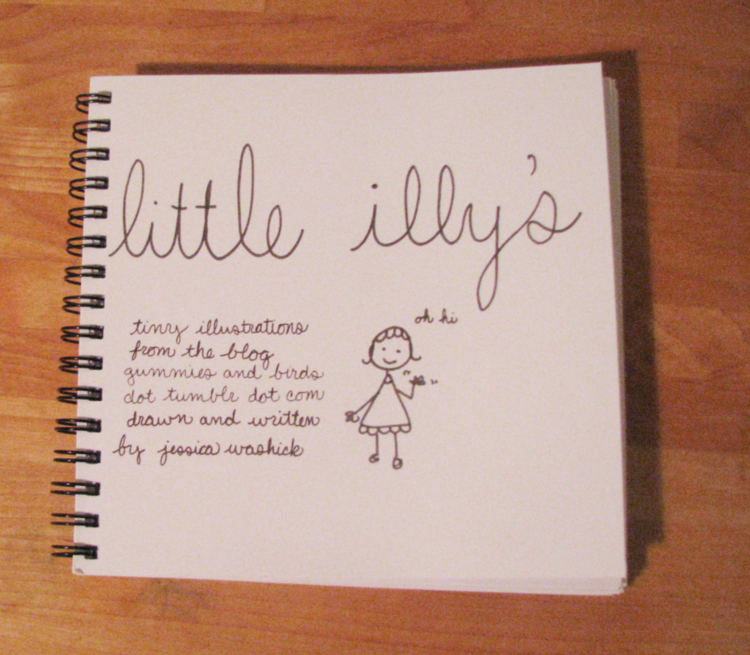 little illy's
tiny illustrations
from the blog
gummies and birds
dot tumblr dot com
drawn and written
by jessica washick
oh hi